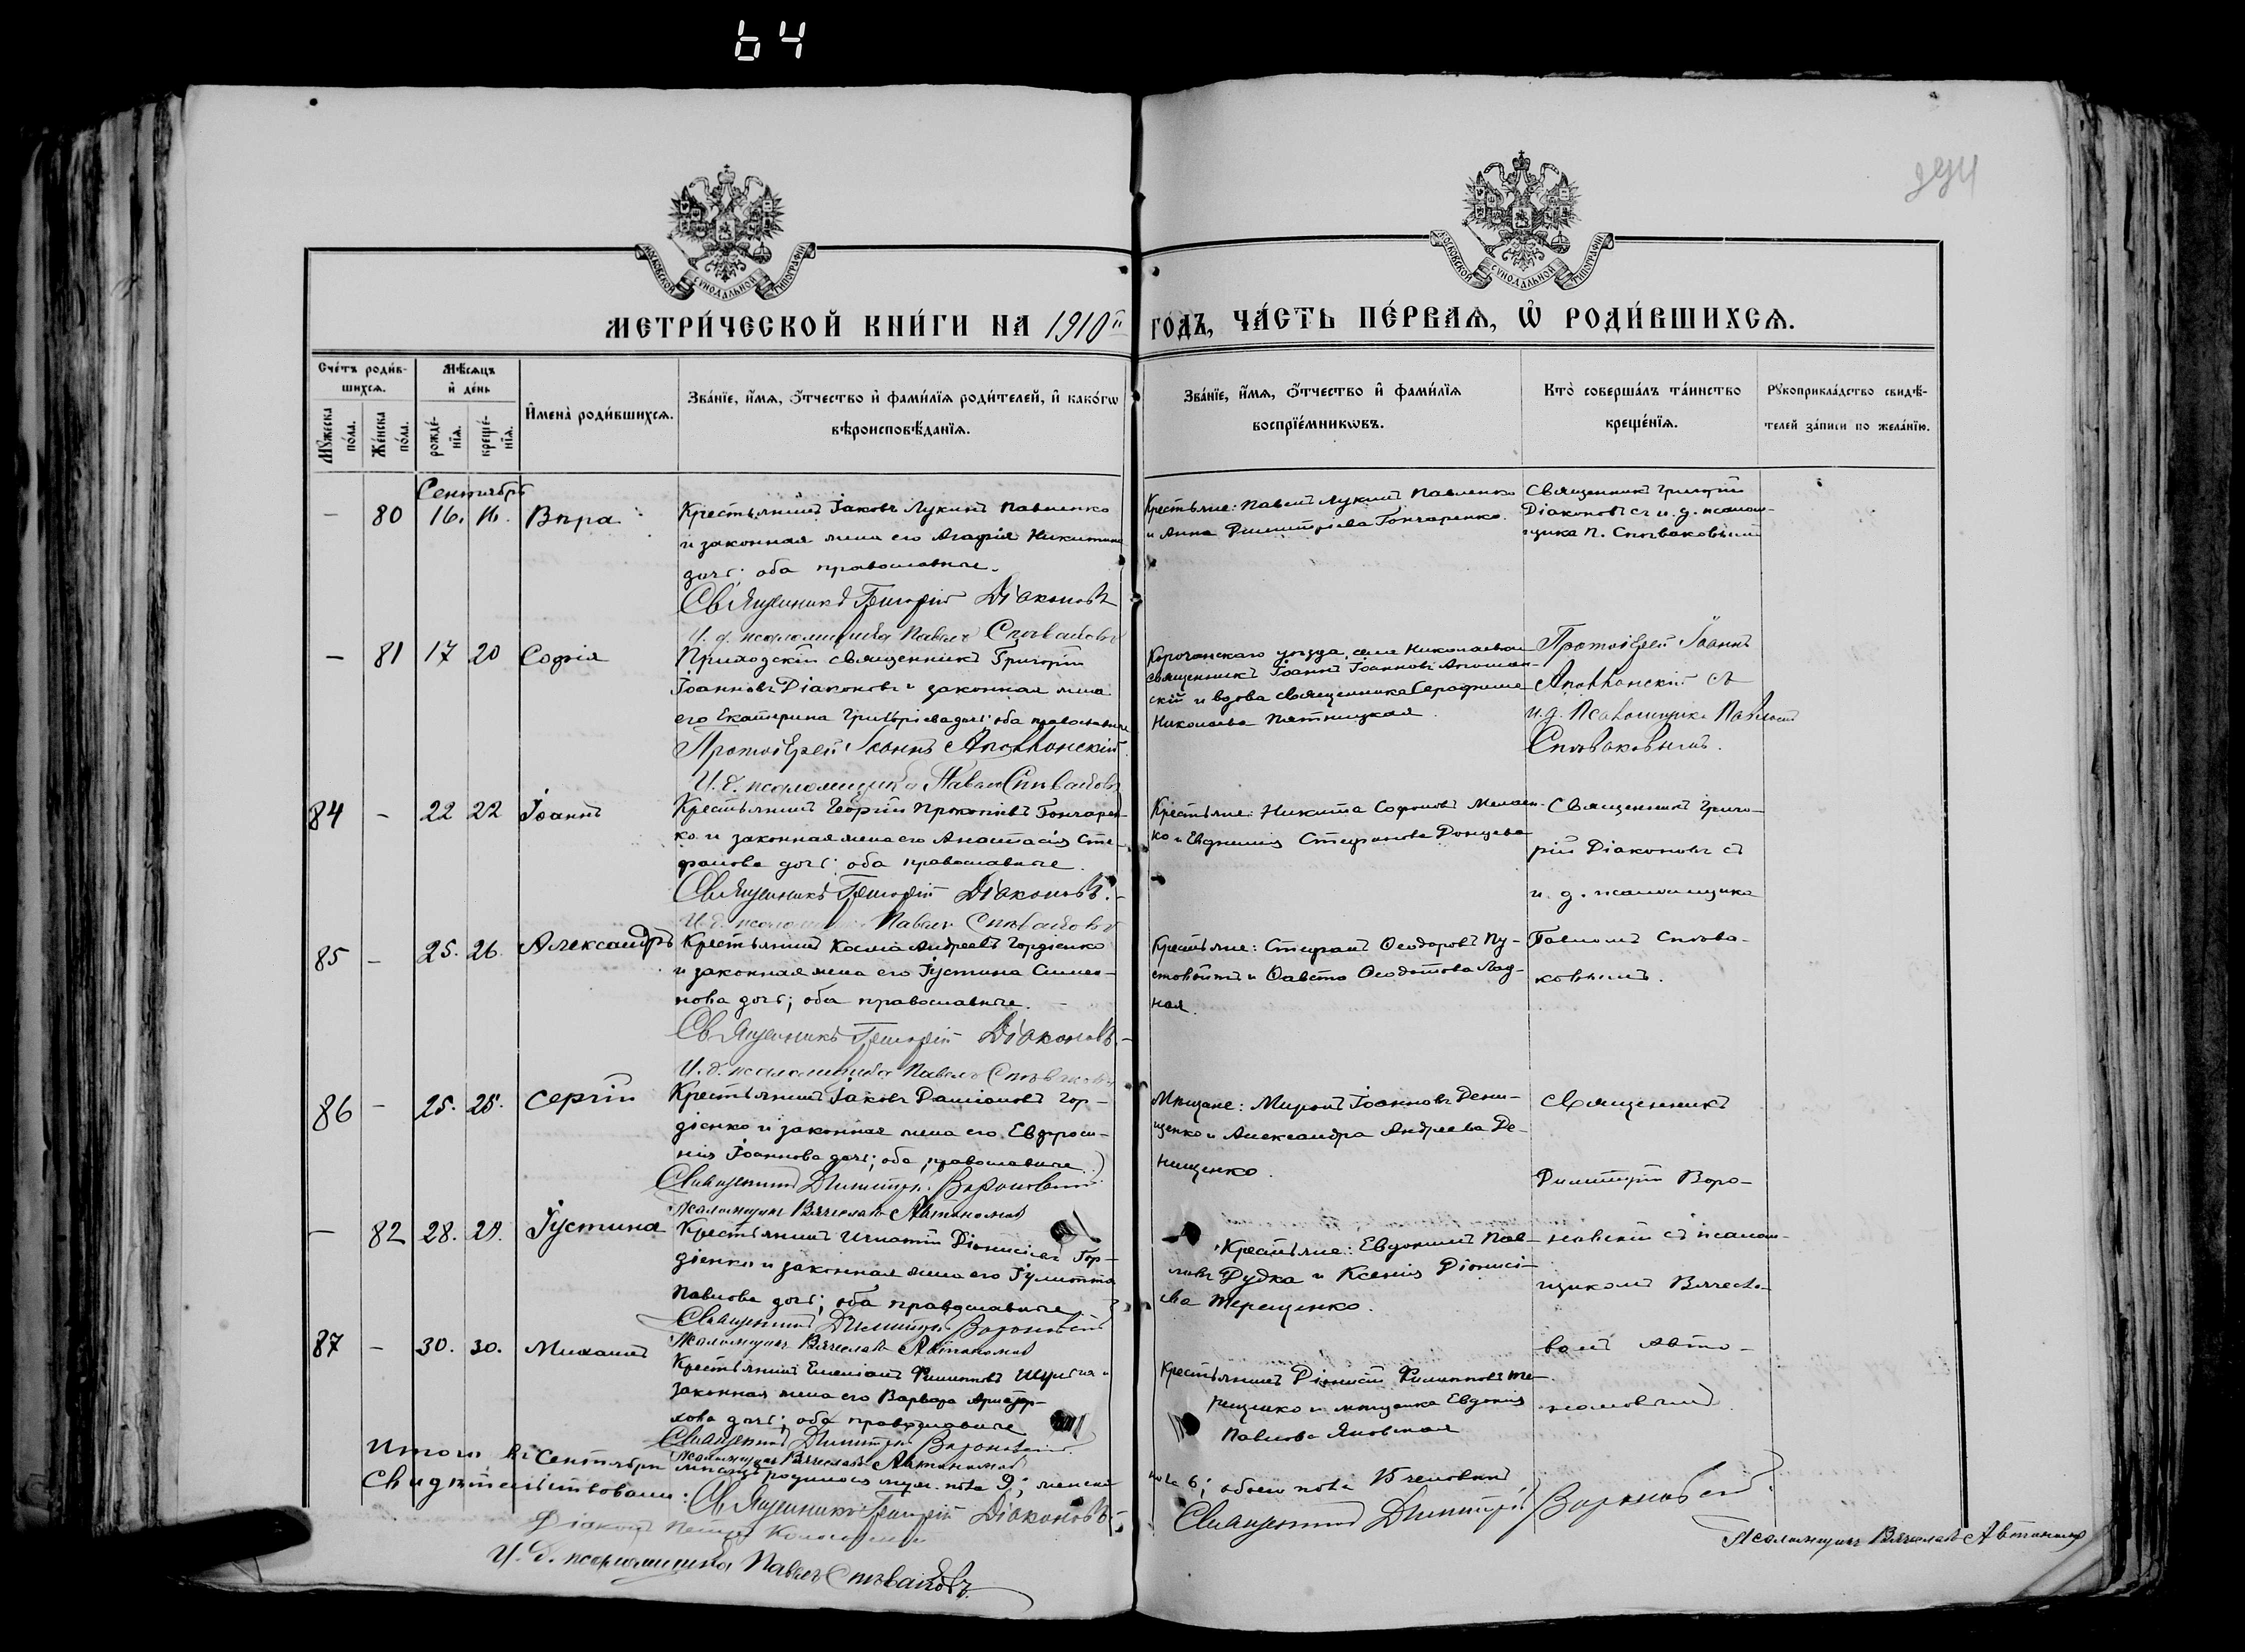 64
294
МОСКОВСКОЙ СѴНОДАЛЬНОЙ ТИПОГРАФІИ
МОСКОВСКОЙ СѴНОДАЛЬНОЙ ТИПОГРАФІИ
МЕТРИ́ЧЕСКОЙ КНИ́ГИ НА 1910й ГО́ДЪ, ЧА́СТЬ ПЕ́РВАѦ, Ѽ РОДИ́ВШИХСѦ.
Сче́тъ роди́в-
шихсѧ.
Мѣ́сѧцъ
и҆ де́нь
Мꙋ́жеска по́ла.
Же́нска по́ла.
рожде́-нїѧ.
креще́-нїѧ.
И҆мена̀ роди́вшихсѧ.
Зва́нїе, и҆́мѧ, ѻ҆́тчество и҆ фами́лїѧ роди́телей, и҆ како́гѡ
вѣроисповѣ́данїѧ.
Зва́нїе, и҆́мѧ, ѻ҆́тчество и҆ фами́лїѧ
воспрїе́мникѡвъ.
Кто̀ соверша́лъ та́инство
креще́нїѧ.
Рꙋкоприкла́дство свидѣ́-
телей за́писи по жела́нїю.
Сентябрь
— 80 16. 16. Вѣра
Крестьянинъ Іаковъ Лукинъ Павленко
и законная жена его Агафія Никитина
дочь; оба православные.
Священникъ Григорій Діаконовъ
И. д. псаломщика Павелъ Спѣваковъ
Крестьяне: Павелъ Лукинъ Павленко
и Анна Димитріева Гончаренко.
Священникъ Григорій
Діаконовъ съ и. д. псалом-
щика П. Спѣваковымъ
— 81 17 20 Софія
Приходскій священникъ Григорій
Іоанновъ Діаконовъ и законная жена
его Екатерина Григоріева дочь; оба православные
Протоіерей Іоаннъ Аполлонскій
И. д. псаломщика Павелъ Спѣваковъ
Корочанскаго уѣзда, села Николаевки
священникъ Іоаннъ Іоанновъ Аполлон-
скій и вдова священника Серафима
Николаева Пятницкая.
Протоіерей Іоаннъ
Аполлонскій съ
и. д. Псаломщика Павломъ
Спѣваковымъ.
84 — 22 22 Іоаннъ
Крестьянинъ Георгій Прокопіевъ Гончарен-
ко и законная жена его Анастасія Сте-
фанова дочь; оба православные.
Священникъ Григорій Діаконовъ.
И. д. псаломщика Павелъ Спѣваковъ
Крестьяне: Никита Софоновъ
ко и Евгенія Стефанова Донцева
Священникъ Григо-
рій Діаконовъ съ
и. д. псаломщика
85 — 25. 26. Александръ
Крестьянинъ Косма Андреевъ Гордіенко
и законная жена его Іустина Симео-
нова дочь; оба православные.
Священникъ Григорій Діаконовъ.
И. д. псаломщика Павелъ Спѣваковъ
Крестьяне: Стефанъ Ѳеодоровъ Пу-
стовойтъ и Ѳавста Ѳеодотова Лад-
ная.
Павломъ Спѣва-
ковымъ.
86 — 25. 25. Сергій
Крестьянинъ Іаковъ Даміановъ Гор-
діенко и законная жена его Евфроси-
нія Іоаннова дочь; оба православные
Священникъ Димитрій Вороновскій
Псаломщикъ Вячеславъ Автономовъ
Мѣщане: Миронъ Іоанновъ Дени-
щенко и Александра Андреева Де-
нищенко.
Священникъ
Димитрій Воро-
— 82 28. 29. Іустина
Крестьянинъ Игнатій Діонисіевъ Гор-
діенко и законная жена его Іулитта
Павлова дочь; оба православные
Священникъ Димитрій Вороновскій
Псаломщикъ Вячеславъ Автономовъ
Крестьяне: Евдокимъ Пав-
ловъ Дудка и Ксенія Діонисі-
ева Терещенко.
новскій съ псалом-
щикомъ Вячесла-
87 — 30. 30. Михаилъ
Крестьянинъ Емеліанъ Филипповъ Шульга и
законная жена его Варвара
дочь; оба православные
Священникъ Димитрій Вороновскій
Псаломщикъ Вячеславъ Автономовъ
Крестьянинъ Діонисій Филипповъ Те-
рещенко и мѣщанка Евдокія
Павлова Яновская
вомъ Авто-
номовымъ.
Итого въ Сентябрѣ мѣсяцѣ родилось муж. пола 9; женска
пола 6; обоего пола 15 человѣкъ
Свидѣтельствовали: Священникъ Григорій Діаконовъ.
Священникъ Димитрій Вороновскій
Діаконъ
Псаломщикъ Вячеславъ Автономовъ
И. д. псаломщика Павелъ Спѣваковъ.